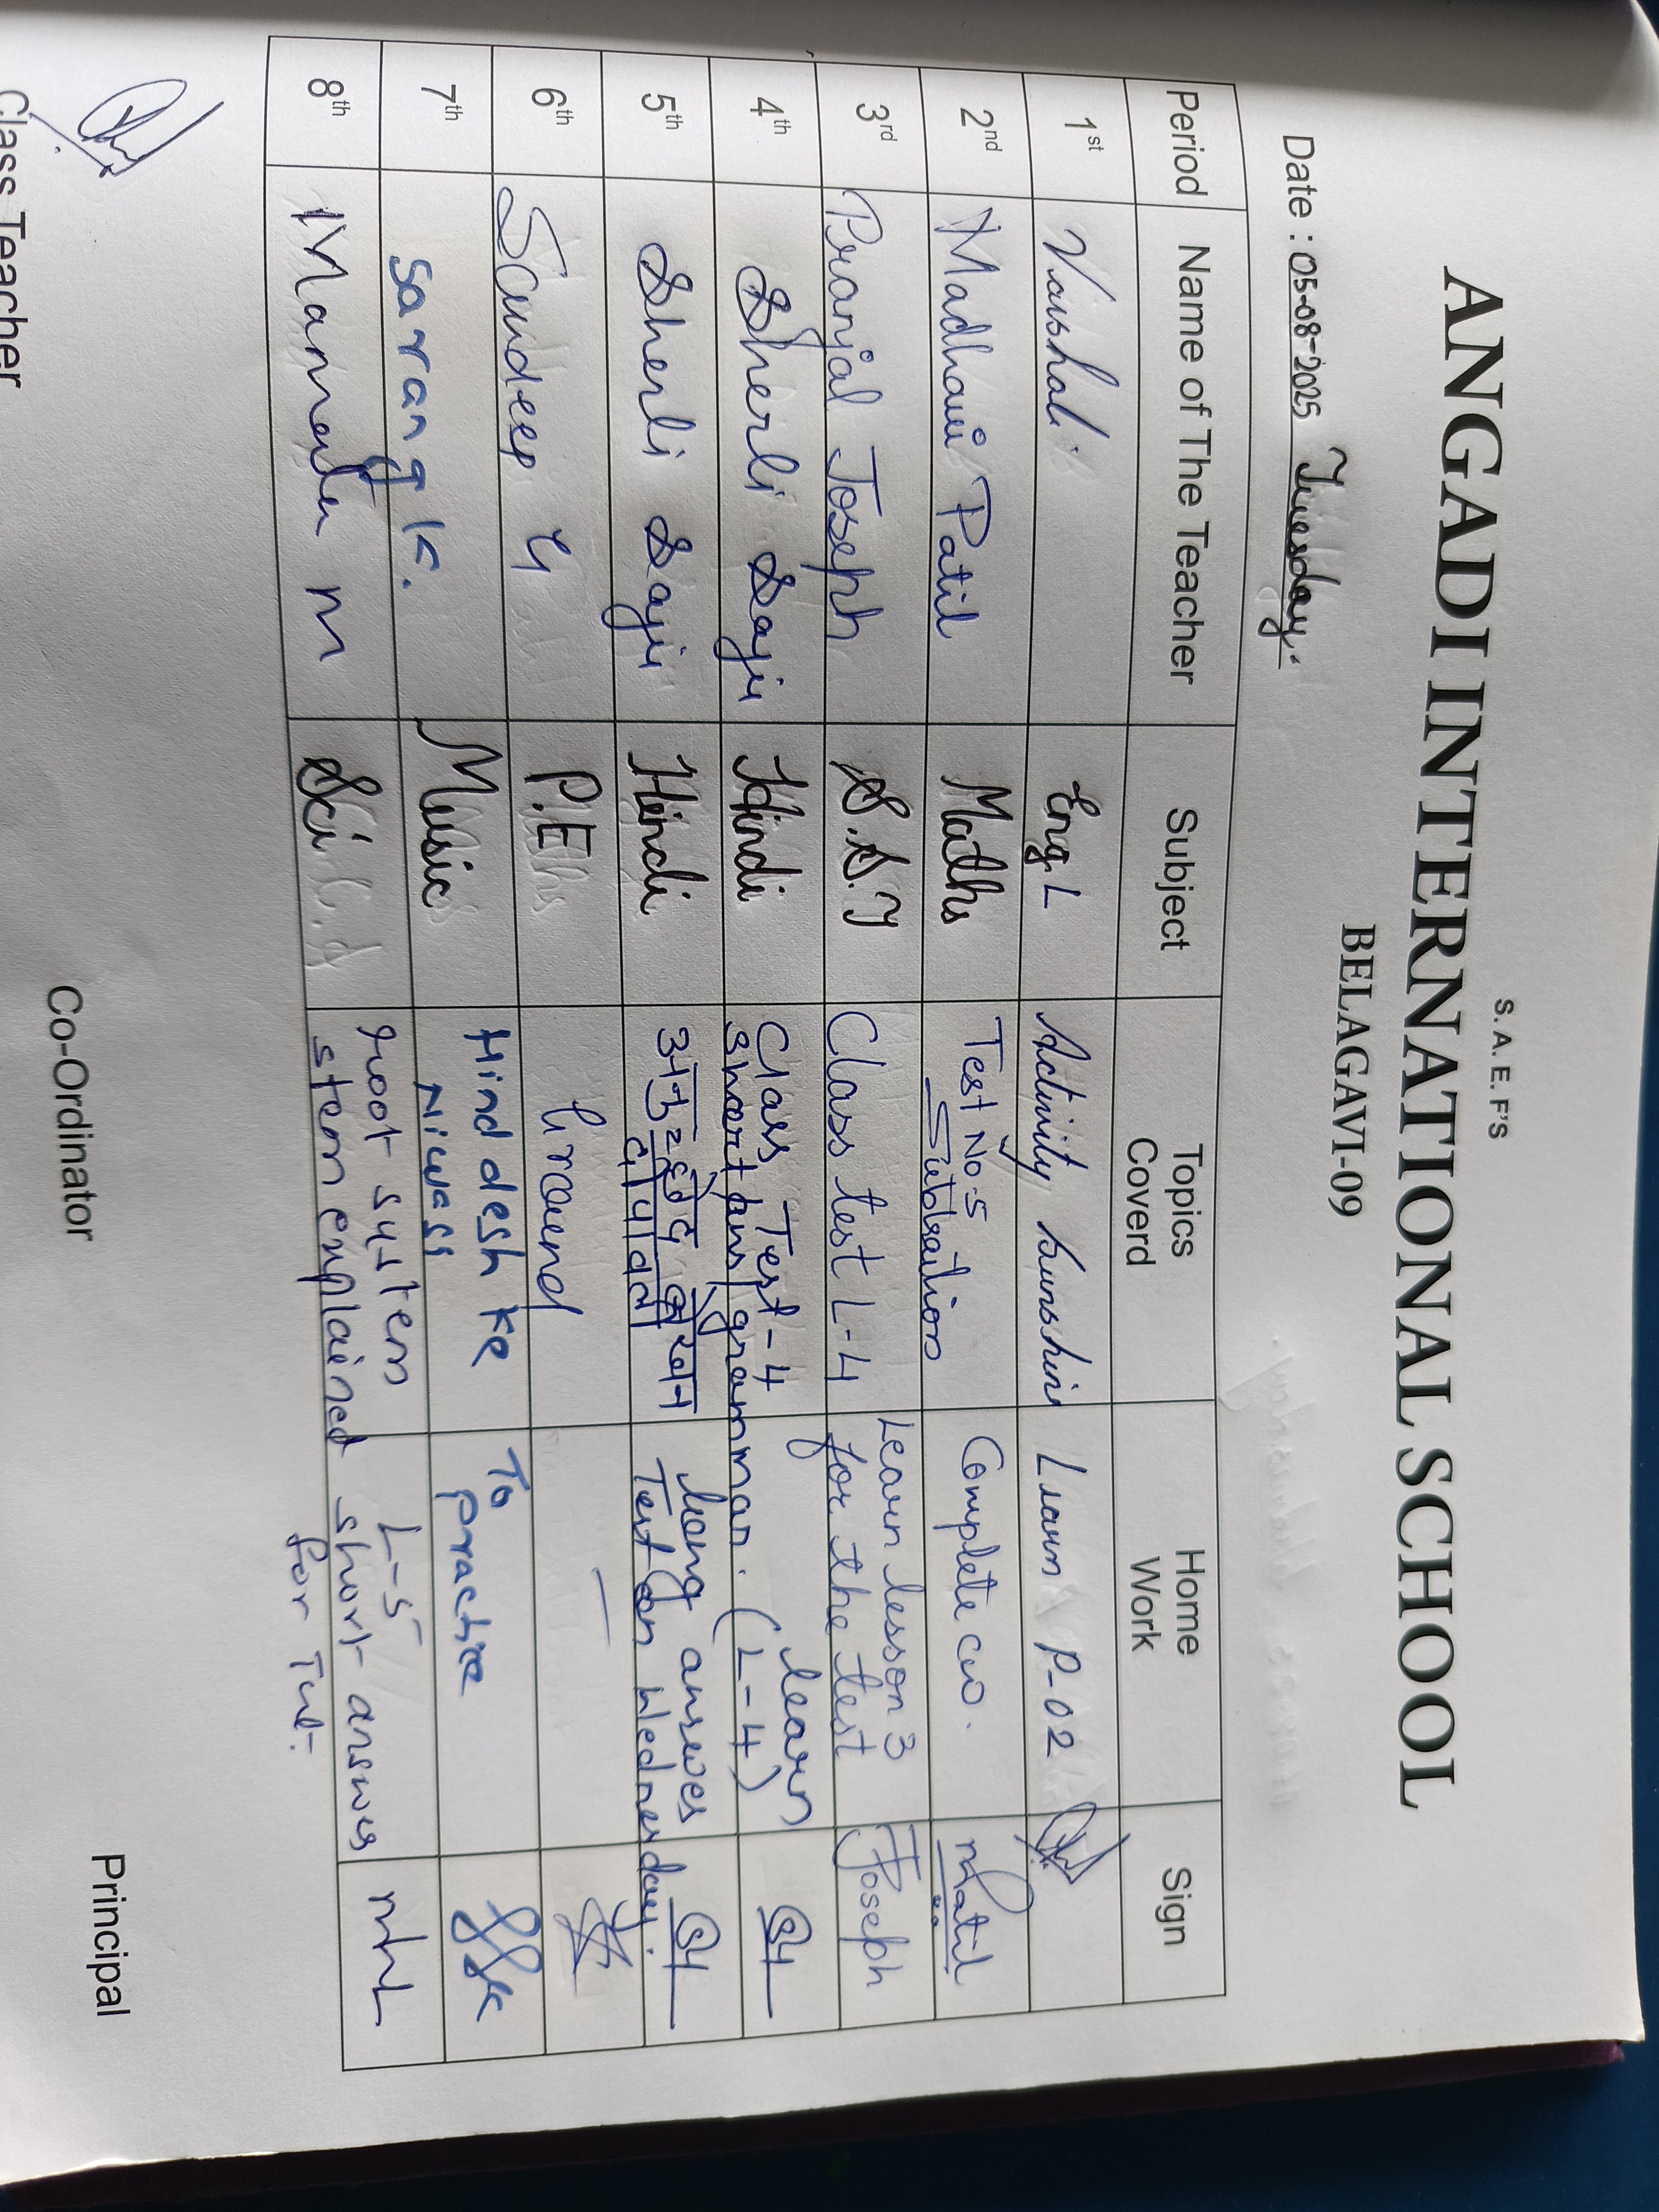 S. A. E. F'S
ANGADI INTERNATIONAL SCHOOL
BELAGAVI-09
Date : 05-08-2025 Tuesday.
Period Name of The Teacher Subject Topics Coverd Home Work Sign
1st Vaishali. Eng L Activity Sunshine Learn P-02
2nd Madhavi Patil Maths Test No-5 Subtraction Complete cw. MPatil
3rd Pranjal Joseph S.S.T Class test L-4 Learn lesson 3 for the test Joseph
4th Sherli Saju Hindi Class Test-4 short ans, grammar. learn (L-4)
5th Sherli Saju Hindi long answes Test on Wednesday.
6th Sandeep G P.E Ground —
7th Sarang K. Music Hind desh ke Niwasi To practice
8th M Sci root system stem explained L-5 short answers for Tut.
Class Teacher Co-Ordinator Principal